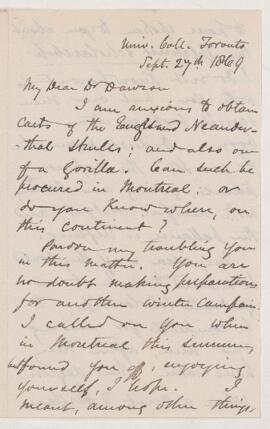 Univ. Coll. Toronto
Sept. 27th 1869
My Dear Dr Dawson
I am anxious to obtain
casts of the Engis and Neander-
thal skulls; and also one
of a Gorilla. Can such be
procured in Montreal, or
do you know where, on
this continent?
Pardon my troubling you
in this matter. You are
no doubt making preparations
for another winter campaign.
I called on you when
in Montreal this summer
found you off, enjoying
yourself, I hope. I
meant, among other things